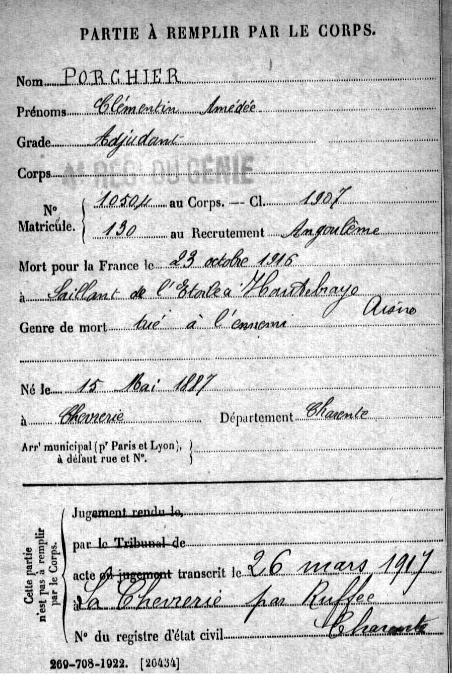 PARTIE À REMPLIR PAR LE CORPS.
Nom PORCHIER
Prénoms Clémentin Amédée
Grade Adjudant
Corps RÉG. DU GÉNIE
N° Matricule. { 10504 au Corps. — Cl. 1907
130 au Recrutement Angoulême
Mort pour la France le 23 octobre 1916
à Saillant de l'Etoile à Hautebraye Aisne
Genre de mort tué à l'ennemi
Né le 15 Mai 1887
à Chevrerie Département Charente
Arrt municipal (pr Paris et Lyon), à défaut rue et N°. }
Cette partie n'est pas à remplir par le Corps. {
Jugement rendu le
par le Tribunal de
acte ou jugement transcrit le 26 mars 1917
à La Chevrerie par Ruffec
Charente
N° du registre d'état civil
269-708-1922. [26434]